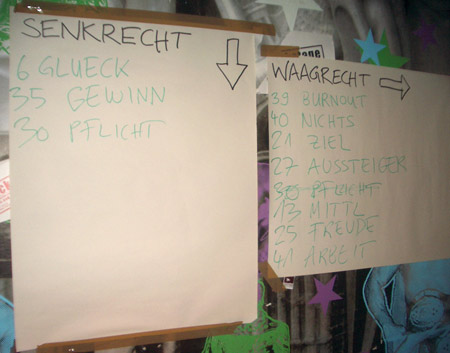 SENKRECHT
6 GLUECK
35 GEWINN
30 PFLICHT
WAAGRECHT
39 BURNOUT
40 NICHTS
21 ZIEL
27 AUSSTEIGER
30 PFLICHT
13 MITTL
25 FREUDE
41 ARBEIT